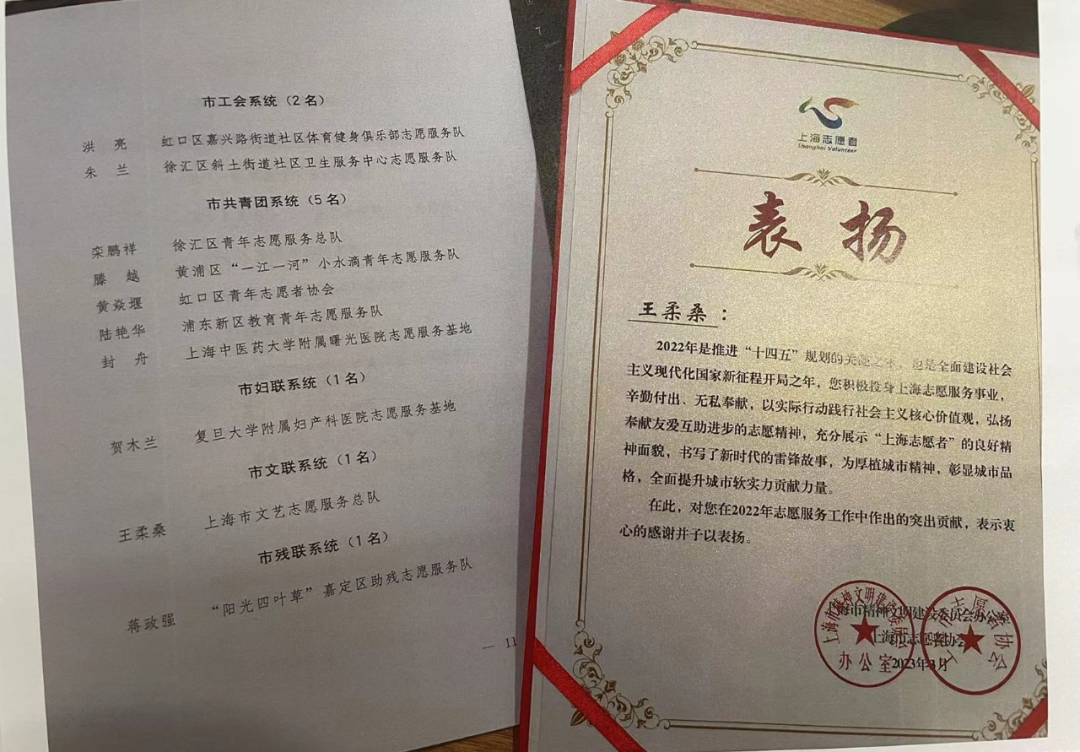 市工会系统（2名）
洪 亮 虹口区嘉兴路街道社区体育健身俱乐部志愿服务队
朱 兰 徐汇区斜土街道社区卫生服务中心志愿服务队
市共青团系统（5名）
栾鹏祥 徐汇区青年志愿服务总队
滕 越 黄浦区“一江一河”小水滴青年志愿服务队
黄焱堰 虹口区青年志愿者协会
陆艳华 浦东新区教育青年志愿服务队
封 舟 上海中医药大学附属曙光医院志愿服务基地
市妇联系统（1名）
贺木兰 复旦大学附属妇产科医院志愿服务基地
市文联系统（1名）
王柔桑 上海市文艺志愿服务总队
市残联系统（1名）
蒋政强 “阳光四叶草”嘉定区助残志愿服务队
— 11
上海志愿者
Shanghai Volunteer
表扬
王柔桑：
2022年是推进“十四五”规划的关键之年，也是全面建设社会
主义现代化国家新征程开局之年，您积极投身上海志愿服务事业，
辛勤付出、无私奉献，以实际行动践行社会主义核心价值观，弘扬
奉献友爱互助进步的志愿精神，充分展示“上海志愿者”的良好精
神面貌，书写了新时代的雷锋故事，为厚植城市精神，彰显城市品
格，全面提升城市软实力贡献力量。
在此，对您在2022年志愿服务工作中作出的突出贡献，表示衷
心的感谢并予以表扬。
上海市精神文明建设委员会办公室
上海市志愿者协会
2023年3月
上海市精神文明建设委员会
办公室
上海市志愿者协会